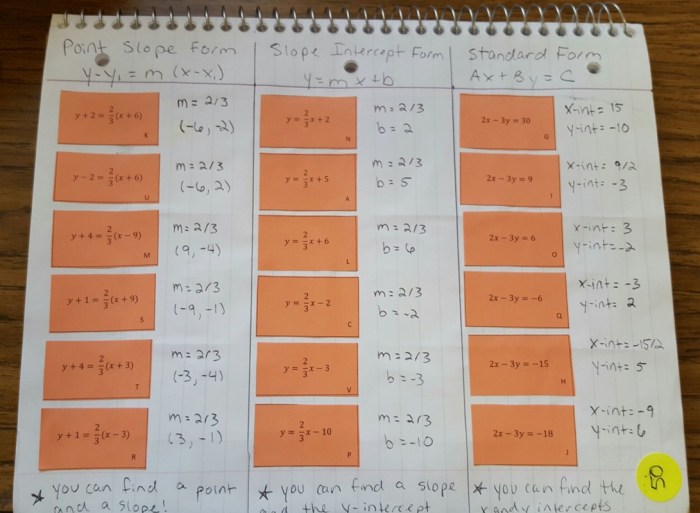 Point Slope Form
y-y₁ = m (x-x₁)
y + 2 = 2/3(x + 6)
K
m = 2/3
(-6, -2)
y − 2 = 2/3(x + 6)
U
m = 2/3
(-6, 2)
y + 4 = 2/3(x − 9)
M
m = 2/3
(9, -4)
y + 1 = 2/3(x + 9)
S
m = 2/3
(-9, -1)
y + 4 = 2/3(x + 3)
T
m = 2/3
(-3, -4)
y + 1 = 2/3(x − 3)
R
m = 2/3
(3, -1)
★ you can find a point
and a slope!
Slope Intercept Form
y = mx + b
y = 2/3x + 2
N
m = 2/3
b = 2
y = 2/3x + 5
A
m = 2/3
b = 5
y = 2/3x + 6
L
m = 2/3
b = 6
y = 2/3x − 2
C
m = 2/3
b = -2
y = 2/3x − 3
V
m = 2/3
b = -3
y = 2/3x − 10
P
m = 2/3
b = -10
★ you can find a slope
and the y-intercept
Standard Form
Ax + By = C
2x − 3y = 30
G
x-int = 15
y-int = -10
2x − 3y = 9
I
x-int = 9/2
y-int = -3
2x − 3y = 6
O
x-int = 3
y-int = -2
2x − 3y = −6
Q
x-int = -3
y-int = 2
2x − 3y = −15
H
x-int = -15/2
y-int = 5
2x − 3y = −18
J
x-int = -9
y-int = 6
★ you can find the
x and y intercepts
50